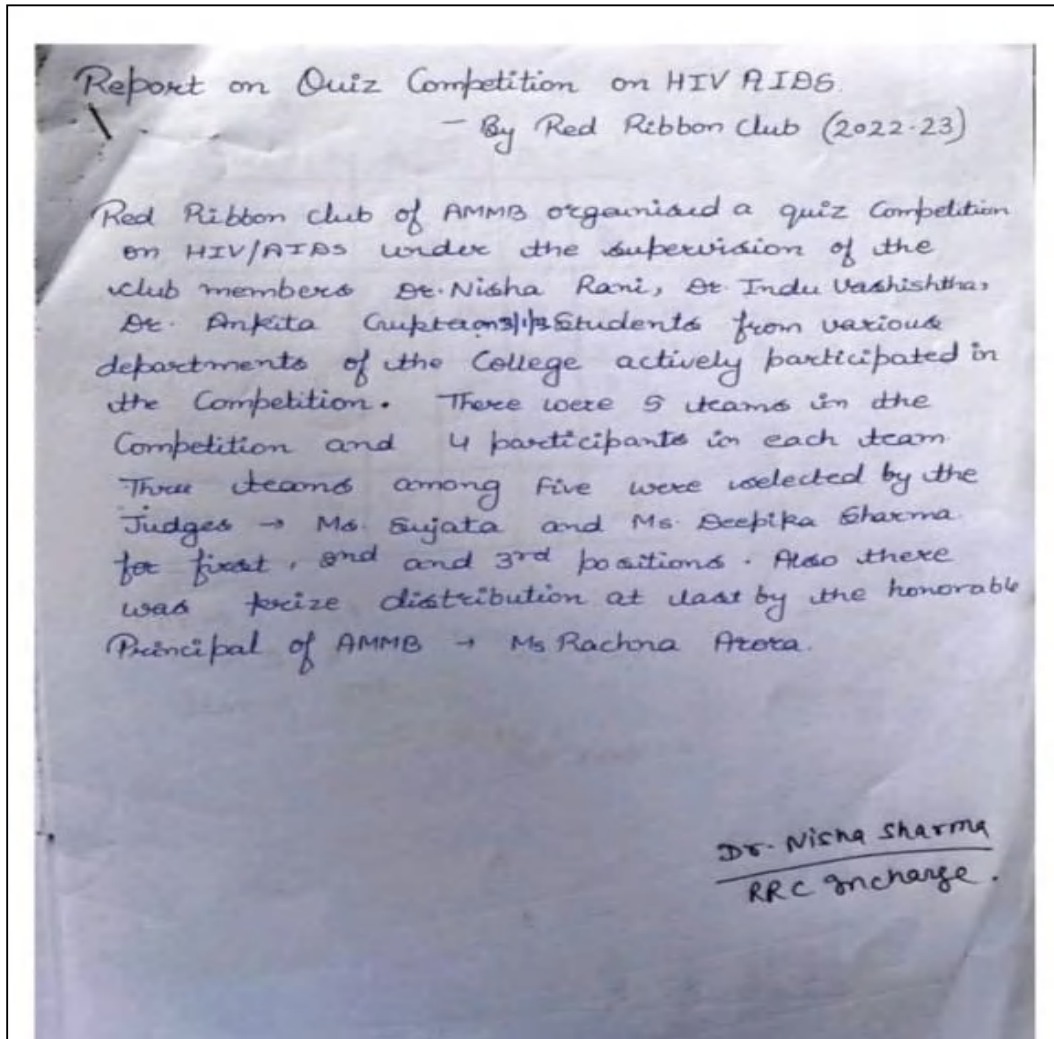 Report on Quiz Competition on HIV AIDS.
- By Red Ribbon Club (2022-23)
Red Ribbon club of AMMB organised a quiz Competition
on HIV/AIDS under the supervision of the
club members Dr. Nisha Rani, Dr. Indu Vashishtha,
Dr. Ankita Gupta on Students from various
departments of the College actively participated in
the Competition. There were 5 teams in the
Competition and 4 participants in each team.
Three teams among five were selected by the
Judges → Ms. Sujata and Ms. Deepika Sharma
for first, 2nd and 3rd positions. Also there
was prize distribution at last by the honorable
Principal of AMMB → Ms Rachna Arora.
Dr. Nisha Sharma
RRC Incharge.